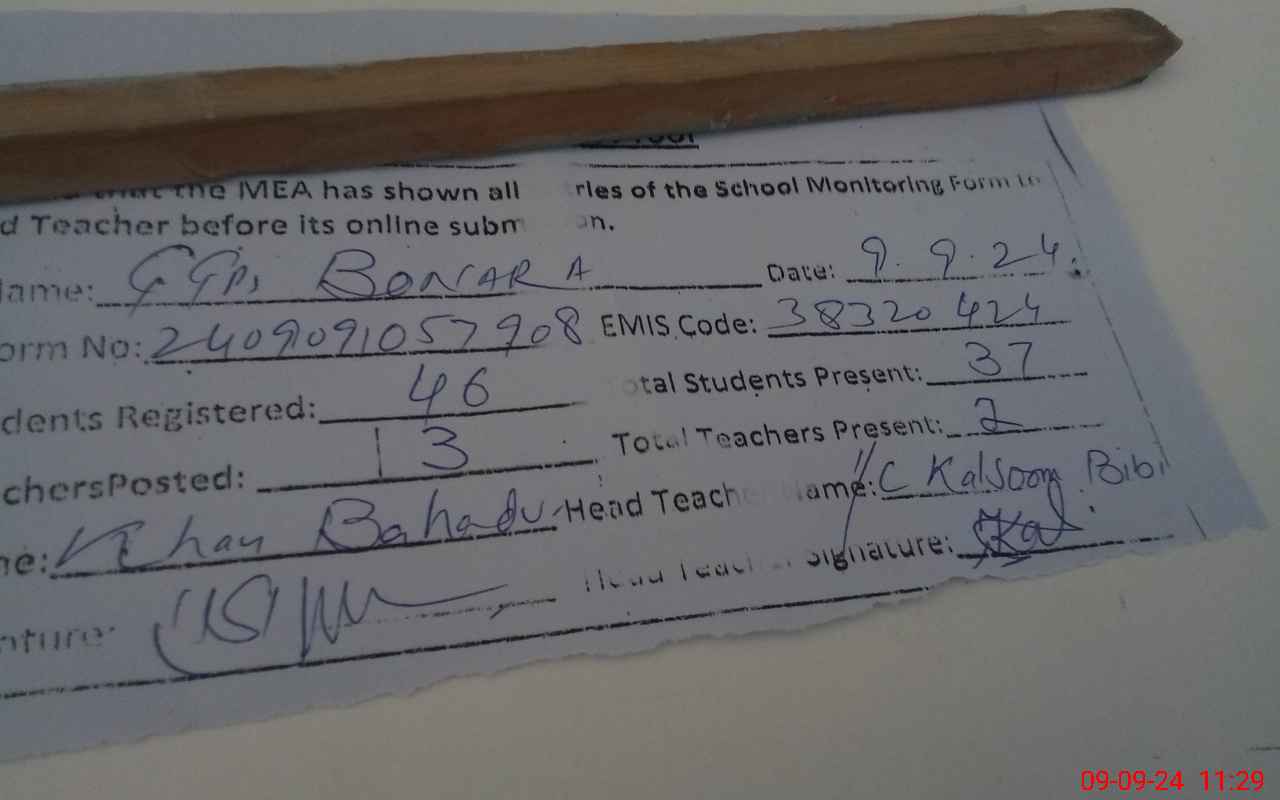 that the MEA has shown all ries of the School Monitoring Form to
d Teacher before its online subm on.
ame: GGPS BONARA Date: 9.9.24
orm No: 2409091057908 EMIS Code: 38320424
dents Registered: 46 otal Students Present: 37
chersPosted: 3 Total Teachers Present: 2
e: Khan Bahadur Head Teach Name: I/C Kalsoom Bibi
ature: Head Teacher Signature: Kal
09-09-24 11:29